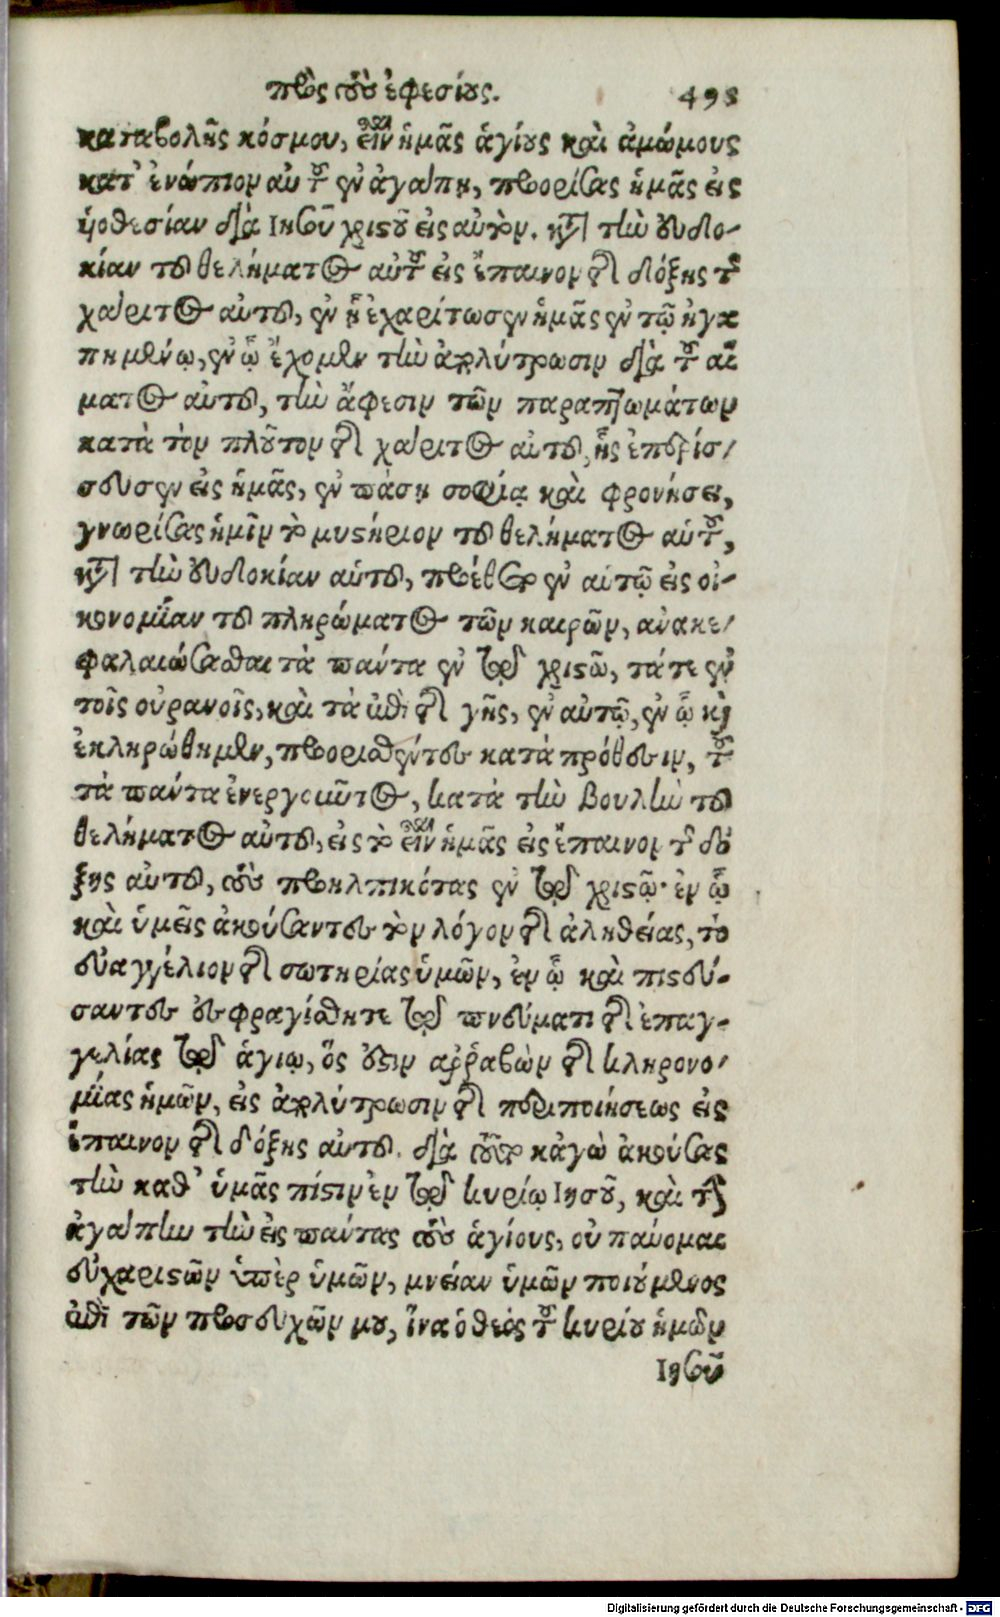 πρὸς τοὺς ἐφεσίους. 495
καταβολῆς κόσμου, εἶναι ἡμᾶς ἁγίους καὶ ἀμώμους
κατ' ἐνώπιον αὐτοῦ ἐν ἀγάπῃ, προορίσας ἡμᾶς εἰς
ὑοθεσίαν διὰ Ιησοῦ χριστοῦ εἰς αὐτὸν. κατὰ τὴν εὐδο-
κίαν τοῦ θελήματος αὐτοῦ εἰς ἔπαινον τῆς δόξης τῆς
χάριτος αὐτοῦ, ἐν ᾗ ἐχαρίτωσεν ἡμᾶς ἐν τῷ ἠγα
πημένῳ, ἐν ᾧ ἔχομεν τὴν ἀπολύτρωσιν διὰ τοῦ αἵ
ματος αὐτοῦ, τὴν ἄφεσιν τῶν παραπτωμάτων
κατὰ τὸν πλοῦτον τῆς χάριτος αὐτοῦ, ἧς ἐπερίσ-
σευσεν εἰς ἡμᾶς, ἐν πάσῃ σοφίᾳ καὶ φρονήσει,
γνωρίσας ἡμῖν τὸ μυστήριον τοῦ θελήματος αὑτοῦ,
κατὰ τὴν εὐδοκίαν αὑτοῦ, προέθετο ἐν αὑτῷ εἰς οἰ-
κονομίαν τοῦ πληρώματος τῶν καιρῶν, ἀνακε-
φαλαιώσασθαι τὰ πάντα ἐν τῷ χριστῶ, τά τε ἐν
τοῖς οὐρανοῖς, καὶ τὰ ἐπὶ τῆς γῆς, ἐν αὐτῷ, ἐν ᾧ καὶ
ἐκληρώθημεν, προορισθέντες κατὰ πρόθεσιν, τοῦ
τὰ πάντα ἐνεργοιῦντος, κατὰ τὴν βουλὴν τοῦ
θελήματος αὐτοῦ, εἰς τὸ εἶναι ἡμᾶς εἰς ἔπαινον τῆς δό
ξης αὐτοῦ, τοὺς προηλπικότας ἐν τῷ χριστῷ· ἐν ᾧ
καὶ ὑμεῖς ἀκούσαντες τὸν λόγον τῆς ἀληθείας, τὸ
εὐαγγέλιον τῆς σωτηρίας ὑμῶν, ἐν ᾧ καὶ πιστεύ-
σαντες ἐσφραγίσθητε τῷ πνεύματι τῆς ἐπαγ-
γελίας τῷ ἁγίῳ, ὅς ἐστιν ἀῤῥαβὼν τῆς κληρονο-
μίας ἡμῶν, εἰς ἀπολύτρωσιν τῆς περιποιήσεως εἰς
ἔπαινον τῆς δόξης αὐτοῦ. διὰ τοῦτο κἀγὼ ἀκούσας
τὴν καθ' ὑμᾶς πίστιν ἐν τῷ κυρίῳ Ιησοῦ, καὶ τὴν
ἀγάπην τὴν εἰς πάντας τοὺς ἁγίους, οὐ παύομαι
εὐχαριστῶν ὑπὲρ ὑμῶν, μνείαν ὑμῶν ποιούμενος
ἐπὶ τῶν προσευχῶν μου, ἵνα ὁ θεὸς τοῦ κυρίου ἡμῶν
Ιησοῦ
Digitalisierung gefördert durch die Deutsche Forschungsgemeinschaft - DFG